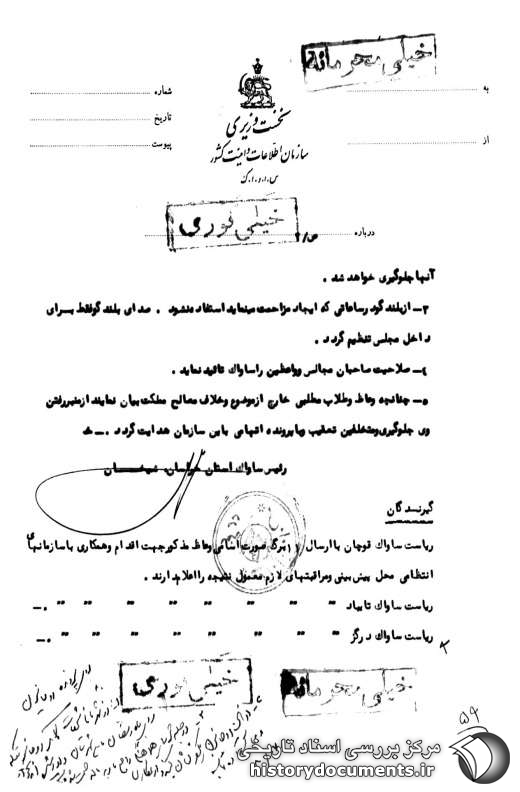 خیلی محرمانه
به
شماره
نخست وزیری
تاریخ
از
پیوست
سازمان اطلاعات و امنیت کشور
س.ا.و.ا.ک
خیلی فوری
درباره
آنها جلوگیری خواهد شد .
۳ـ ازبلند گودرساعاتی که ایجاد مزاحمت مینماید استفاده نشود . صدای بلند گوفقط بــرای
داخل مجلس تنظیم گردد .
۴ـ صلاحیت صاحبان مجالس وواعظین راساواك تائید نماید .
۵ـ چنانچه وعاظ وطلاب مطلبی خارج ازموضوع وخلاف مصالح مملکت بیان نمایند ازمنبررفتن
وی جلوگیری ومتخلفین تعقیب وباپرونده اتهامی باین سازمان هدایت گردد .ـ
رئیس ساواك استان خراسان. شیخــــان
گیرندگان
ریاست ساواك قوچان باارسال ۱۱ برگ صورت اسامی وعاظ مذکورجهت اقدام وهمکاری باسازمانهای
انتظامی محل پیش بینی ومراقبتهای لازم معمول نتیجه رااعلام دارند .
ریاست ساواك تایباد " " " " " " " .ـ
ریاست ساواك درگز " " " " " " " .ـ
خیلی محرمانه
خیلی فوری
۵۹
مرکز بررسی اسناد تاریخی
historydocuments.ir